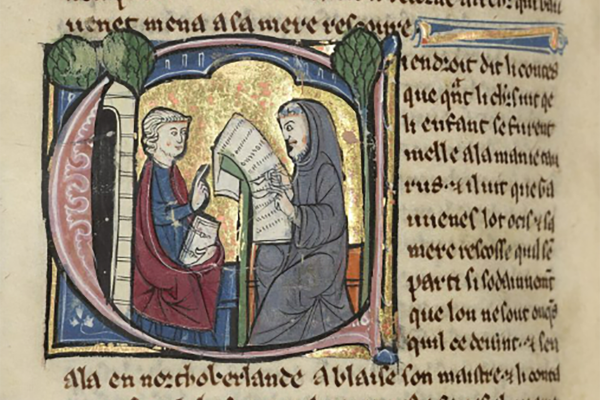 uenet mena a sa mere rescourre
endroit dit li contes
que qñt li chrs uit qe
li enfant se furent
melle a la maniee au
rus. ⁊ il uit que ga
uuenes lot ocis ⁊ sa
mere rescosse quil se
parti si sodainement
que lon ne sout onqs
quil ce deuint. ⁊ sen
ala en norhoberlande a blaise son maistre. ⁊ li conta